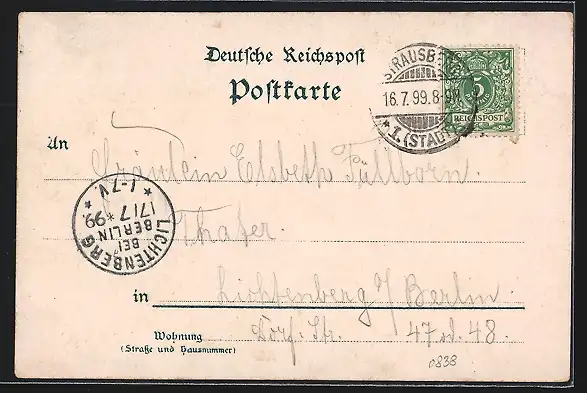 Deutsche Reichspost
Postkarte
STRAUSBERG
16.7.99.8-9N.
* 1. (STADT)
5
REICHSPOST
An
Fräulein Elsbeth Füllborn.
Thaer.
LICHTENBERG
BEI BERLIN
17/7 * 99.
* 1-7V. *
in
Lichtenberg a/ Berlin.
Wohnung
Dorf-Str. 47 od. 48.
(Straße und Hausnummer)
0838